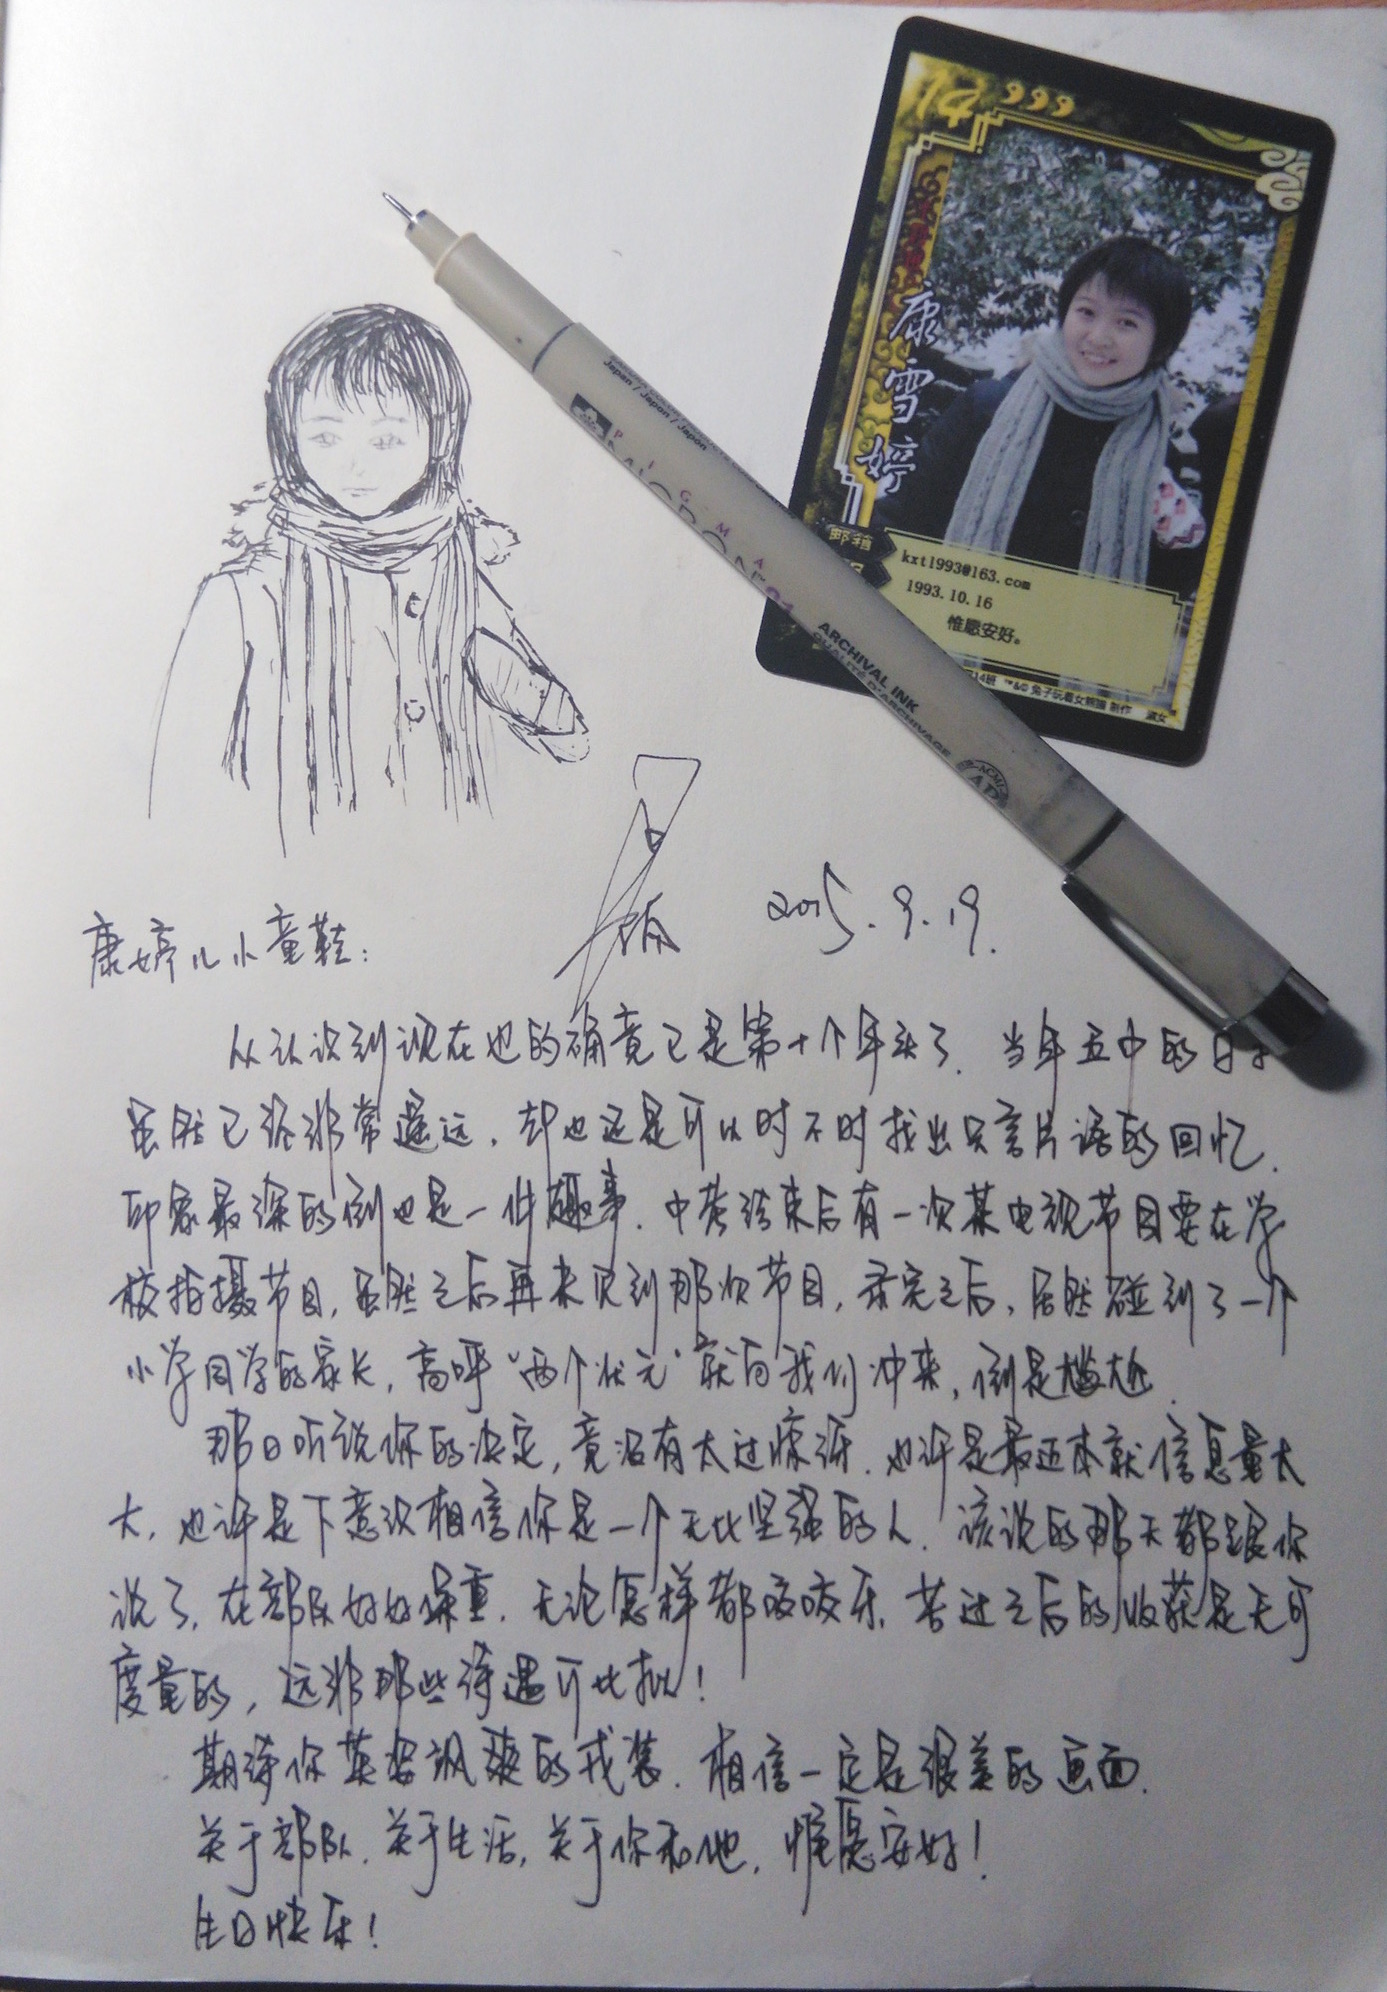 14
康雪婷
邮箱
kxt1993@163.com
1993.10.16
惟愿安好。
14班 ™&© 兔子玩着女熊猫 制作 淑女
Japan / Japon / Japón
PIGMA
ARCHIVAL INK
QUALITÉ D'ARCHIVAGE
2015.9.19.
康婷儿小童鞋:
从认识到现在也的确竟已是第十个年头了.当年五中的日子
虽然已经非常遥远,却也还是可以时不时找出只言片语的回忆.
印象最深的倒也是一件趣事.中考结束后有一次某电视节目要在学
校拍摄节目,虽然之后再未见到那次节目,录完之后,居然碰到了一个
小学同学的家长,高呼“两个状元”就向我们冲来,倒是尴尬.
那日听说你的决定,竟没有太过惊讶.也许是最近本就信息量太
大,也许是下意识相信你是一个无比坚强的人.该说的那天都跟你
说了,在部队好好保重.无论怎样都咬咬牙.苦过之后的收获是无可
度量的,远非那些待遇可比拟!
期待你英姿飒爽的戎装.相信一定是很美的画面.
关于部队,关于生活,关于你和他,惟愿安好!
生日快乐!